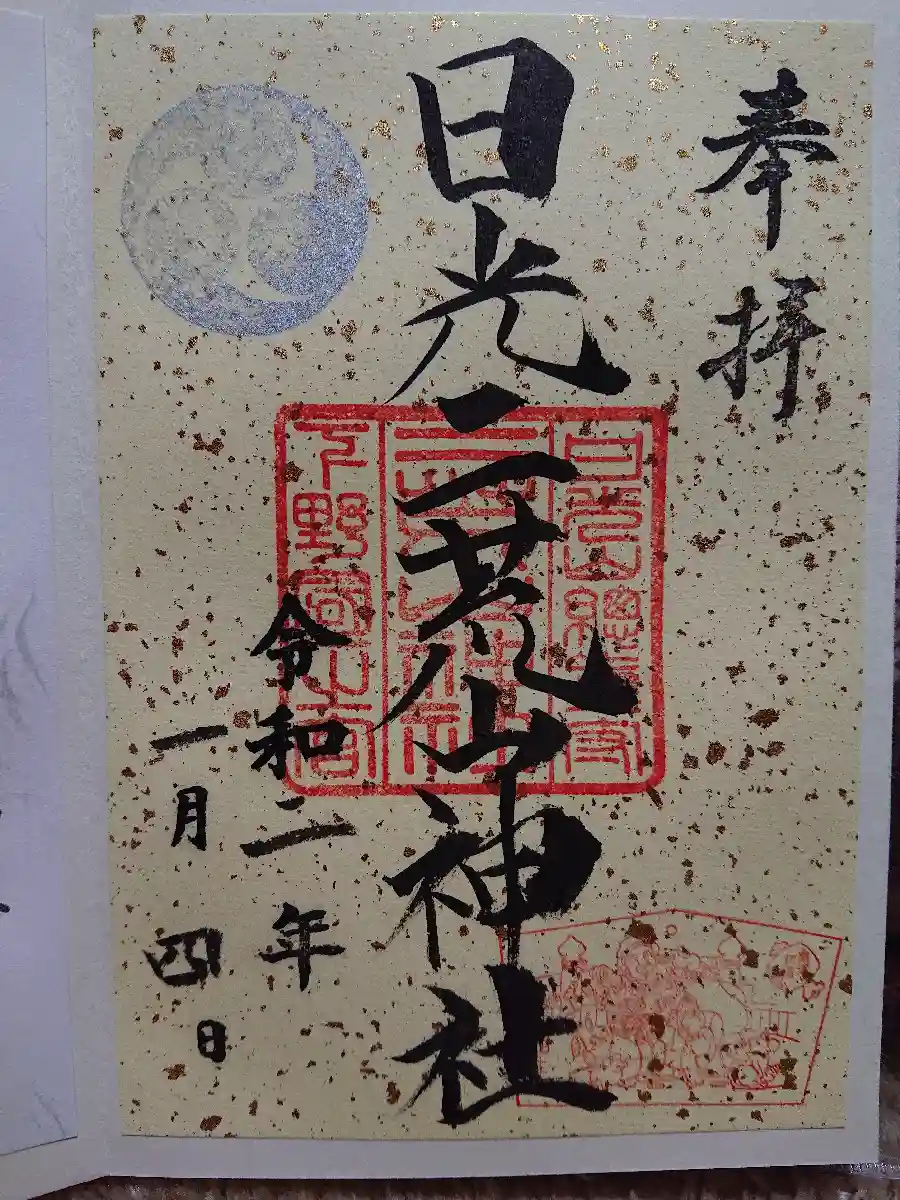 奉拝
日光山総鎮守
二荒山神社
下野国一之宮
日光二荒山神社
令和二年
一月四日